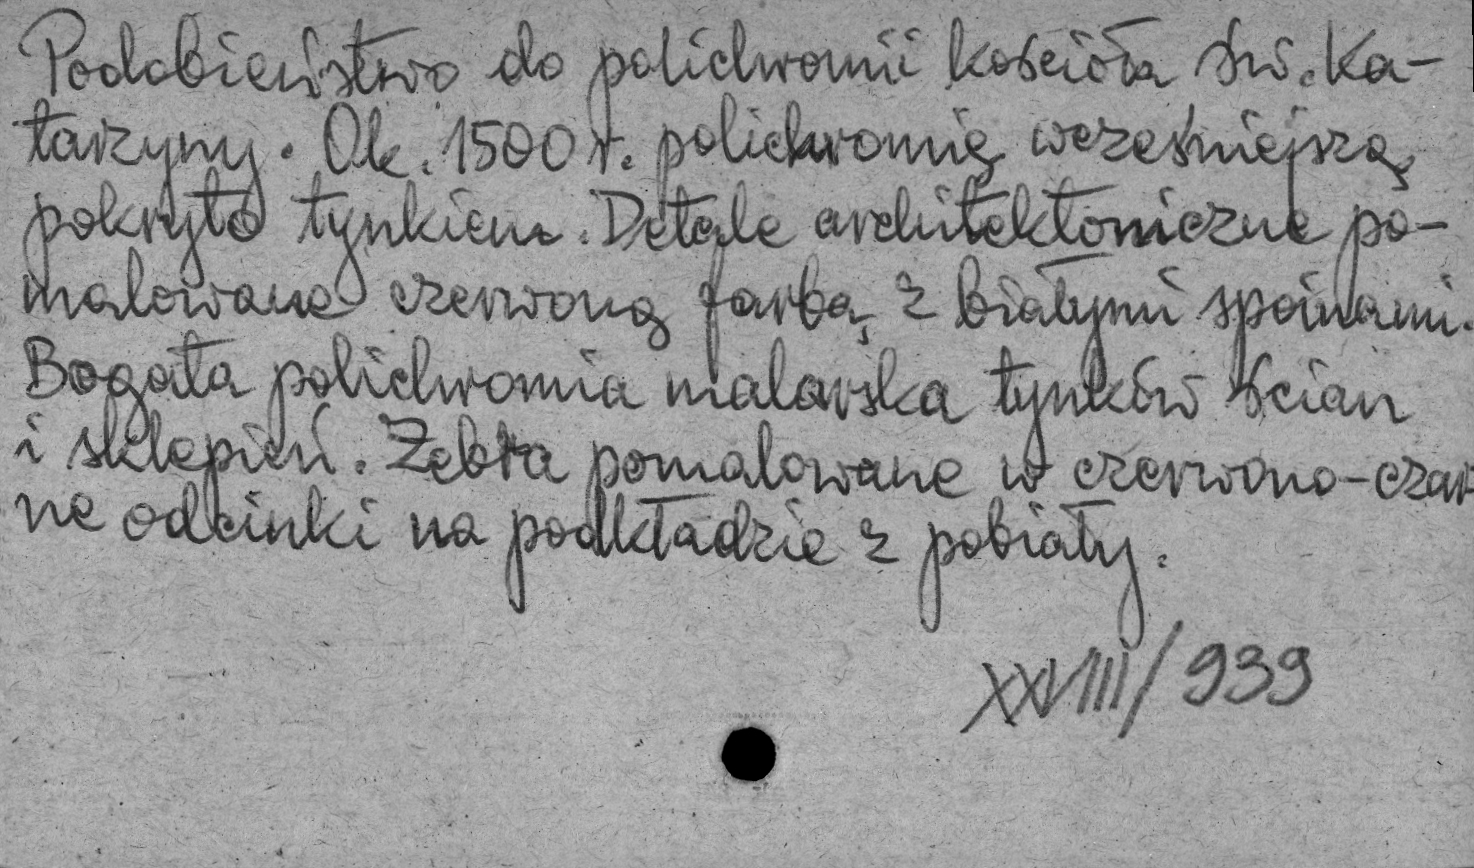 Podobieństwo do polichromii kościoła św. Ka-
tarzyny. Ok. 1500 r. polichromię wcześniejszą
pokryto tynkiem. Detale architektoniczne po-
malowane czerwoną farbą z białymi spoinami.
Bogata polichromia malarska tynków ścian
i sklepień. Żebra pomalowane w czerwono-czar-
ne odcinki na podkładzie z pobiały.
XXVIII/939